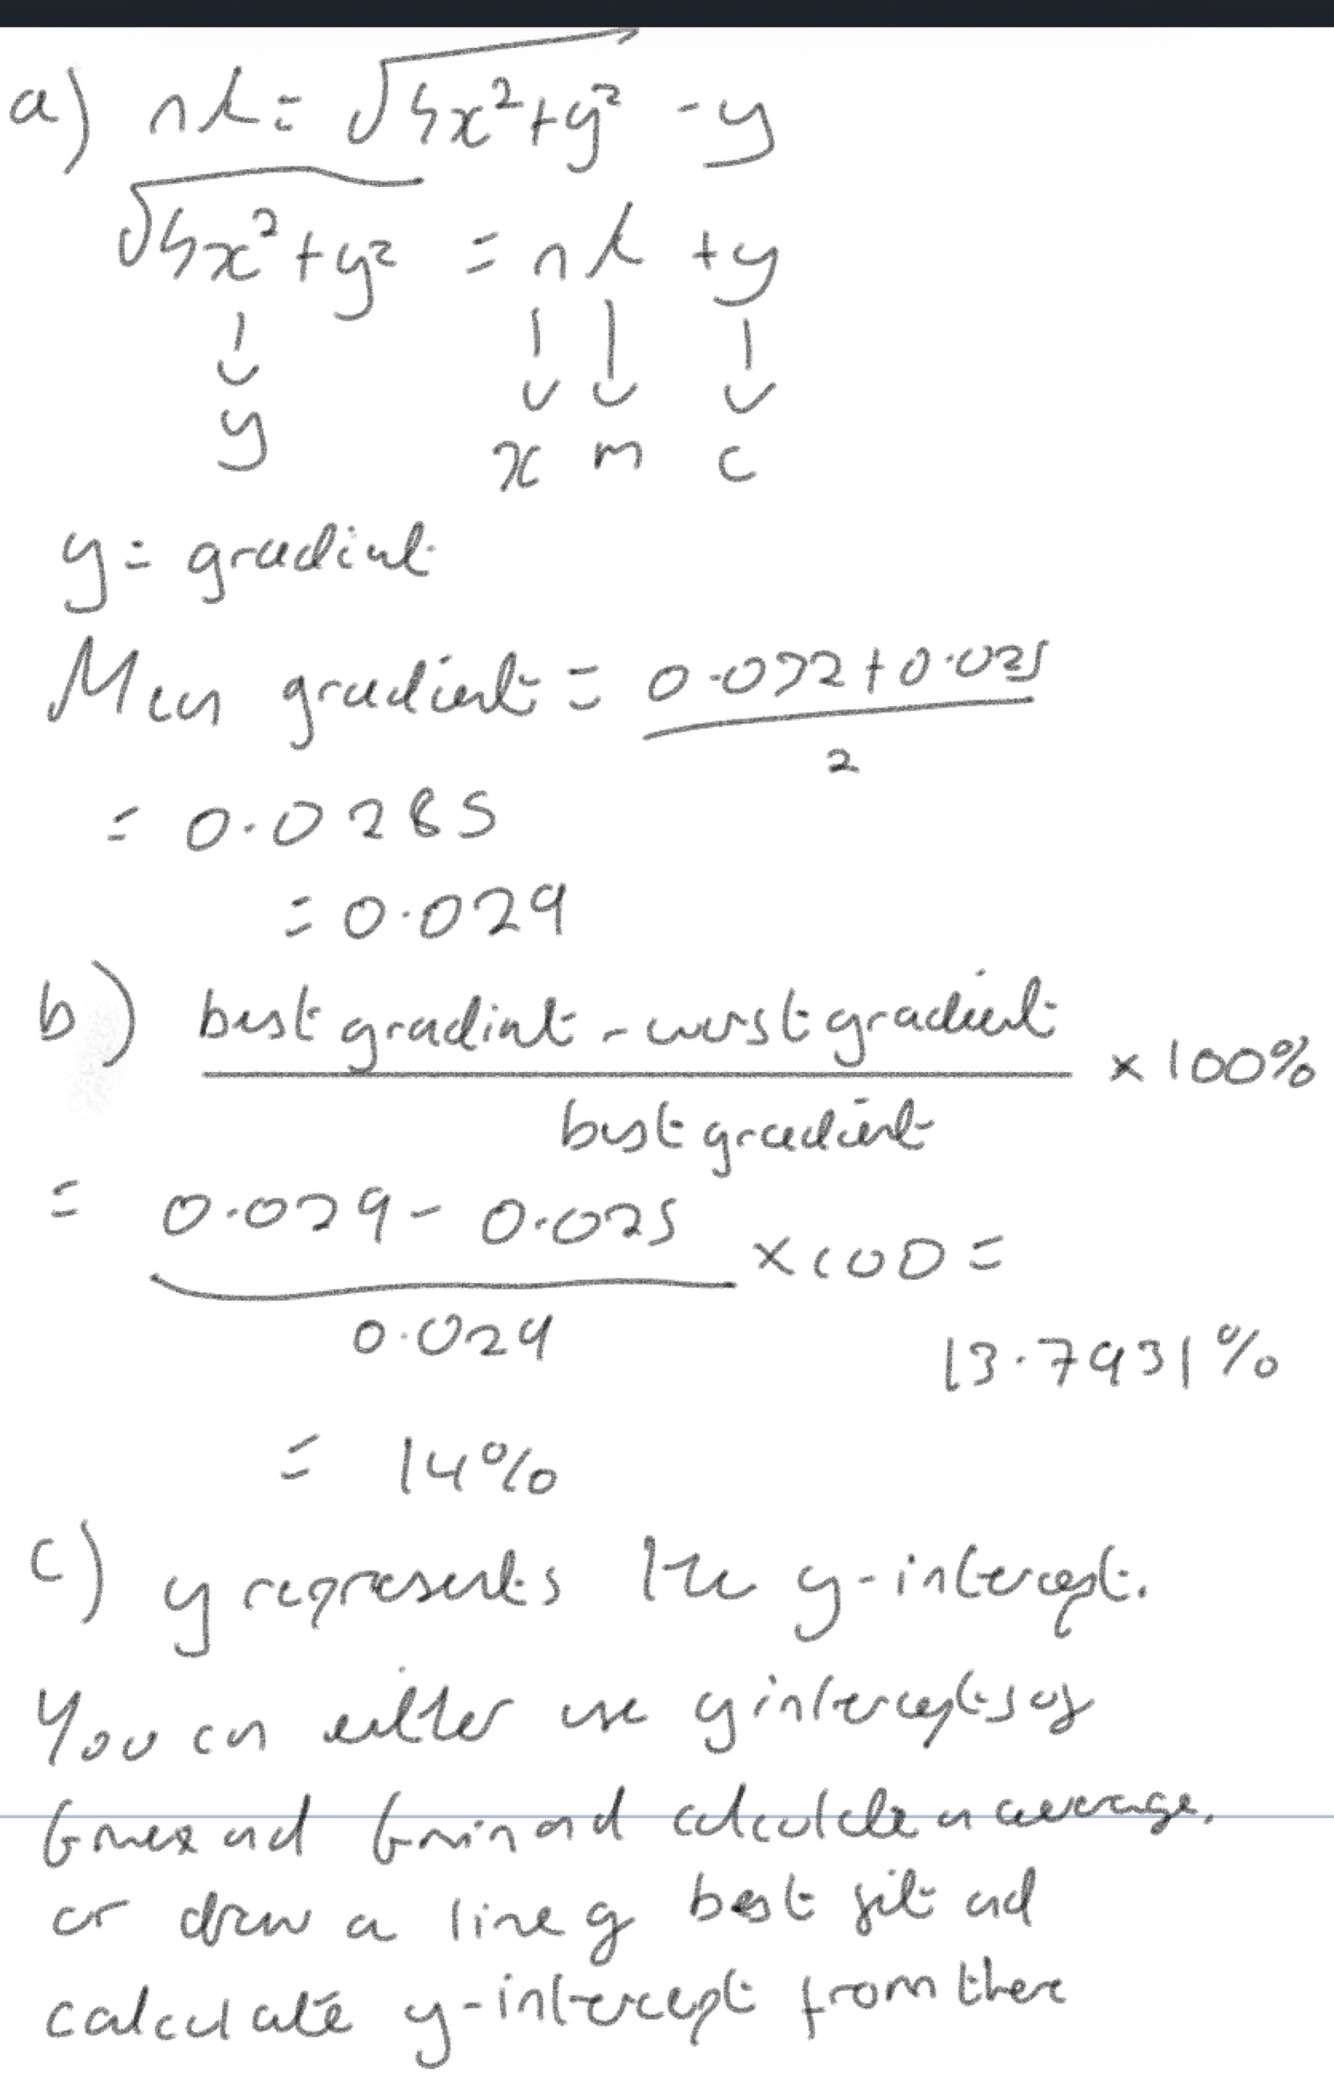 a) nλ = √4x²+y² - y
√4x²+y² = nλ + y
↓ ↓ ↓ ↓
y x m c
y = gradient
Mean gradient = 0.032 + 0.025
2
= 0.0285
= 0.029
b) best gradient - worst gradient × 100%
best gradient
= 0.029 - 0.025 × 100 =
0.029
13.7931%
= 14%
c) y represents the y-intercept.
You can either use y intercepts of
Gmax and Gmin and calculate an average.
or draw a line of best fit and
calculate y-intercept from there